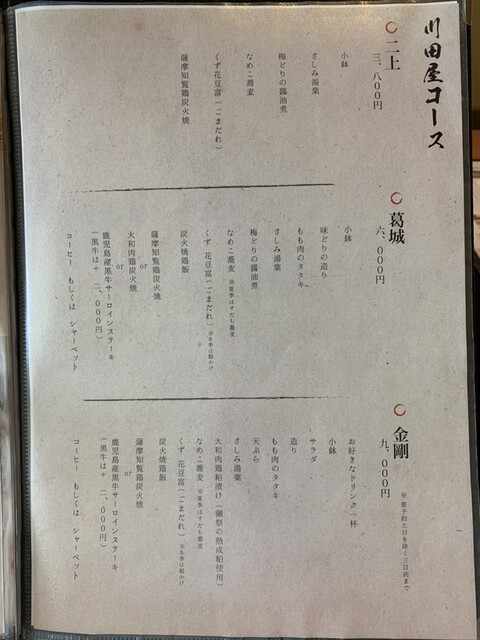 川田屋コース
二上
三、八〇〇円
小鉢
さしみ湯葉
梅どりの醤油煮
なめこ蕎麦
くず花豆富(ごまだれ)
薩摩知覧鶏炭火焼
葛城
六、〇〇〇円
小鉢
味どりの造り
もも肉のタタキ
さしみ湯葉
梅どりの醤油煮
なめこ蕎麦 ※夏季はすだち蕎麦
くず 花豆富(ごまだれ) ※冬季は餡かけ
炭火焼鶏飯
薩摩知覧鶏炭火焼
or
大和肉鶏炭火焼
or
鹿児島産黒牛サーロインステーキ
(黒牛は+ 二、〇〇〇円)
コーヒー もしくは シャーベット
金剛
九、〇〇〇円
※ 要予約土日を除く三日前まで
お好きなドリンク一杯
小鉢
サラダ
造り
もも肉のタタキ
天ぷら
さしみ湯葉
大和肉鶏粕漬け(獺祭の熟成粕使用)
なめこ蕎麦 ※夏季はすだち蕎麦
くず 花豆富(ごまだれ) ※冬季は餡かけ
炭火焼鶏飯
薩摩知覧鶏炭火焼
or
鹿児島産黒牛サーロインステーキ
(黒牛は+ 二、〇〇〇円)
コーヒー もしくは シャーベット